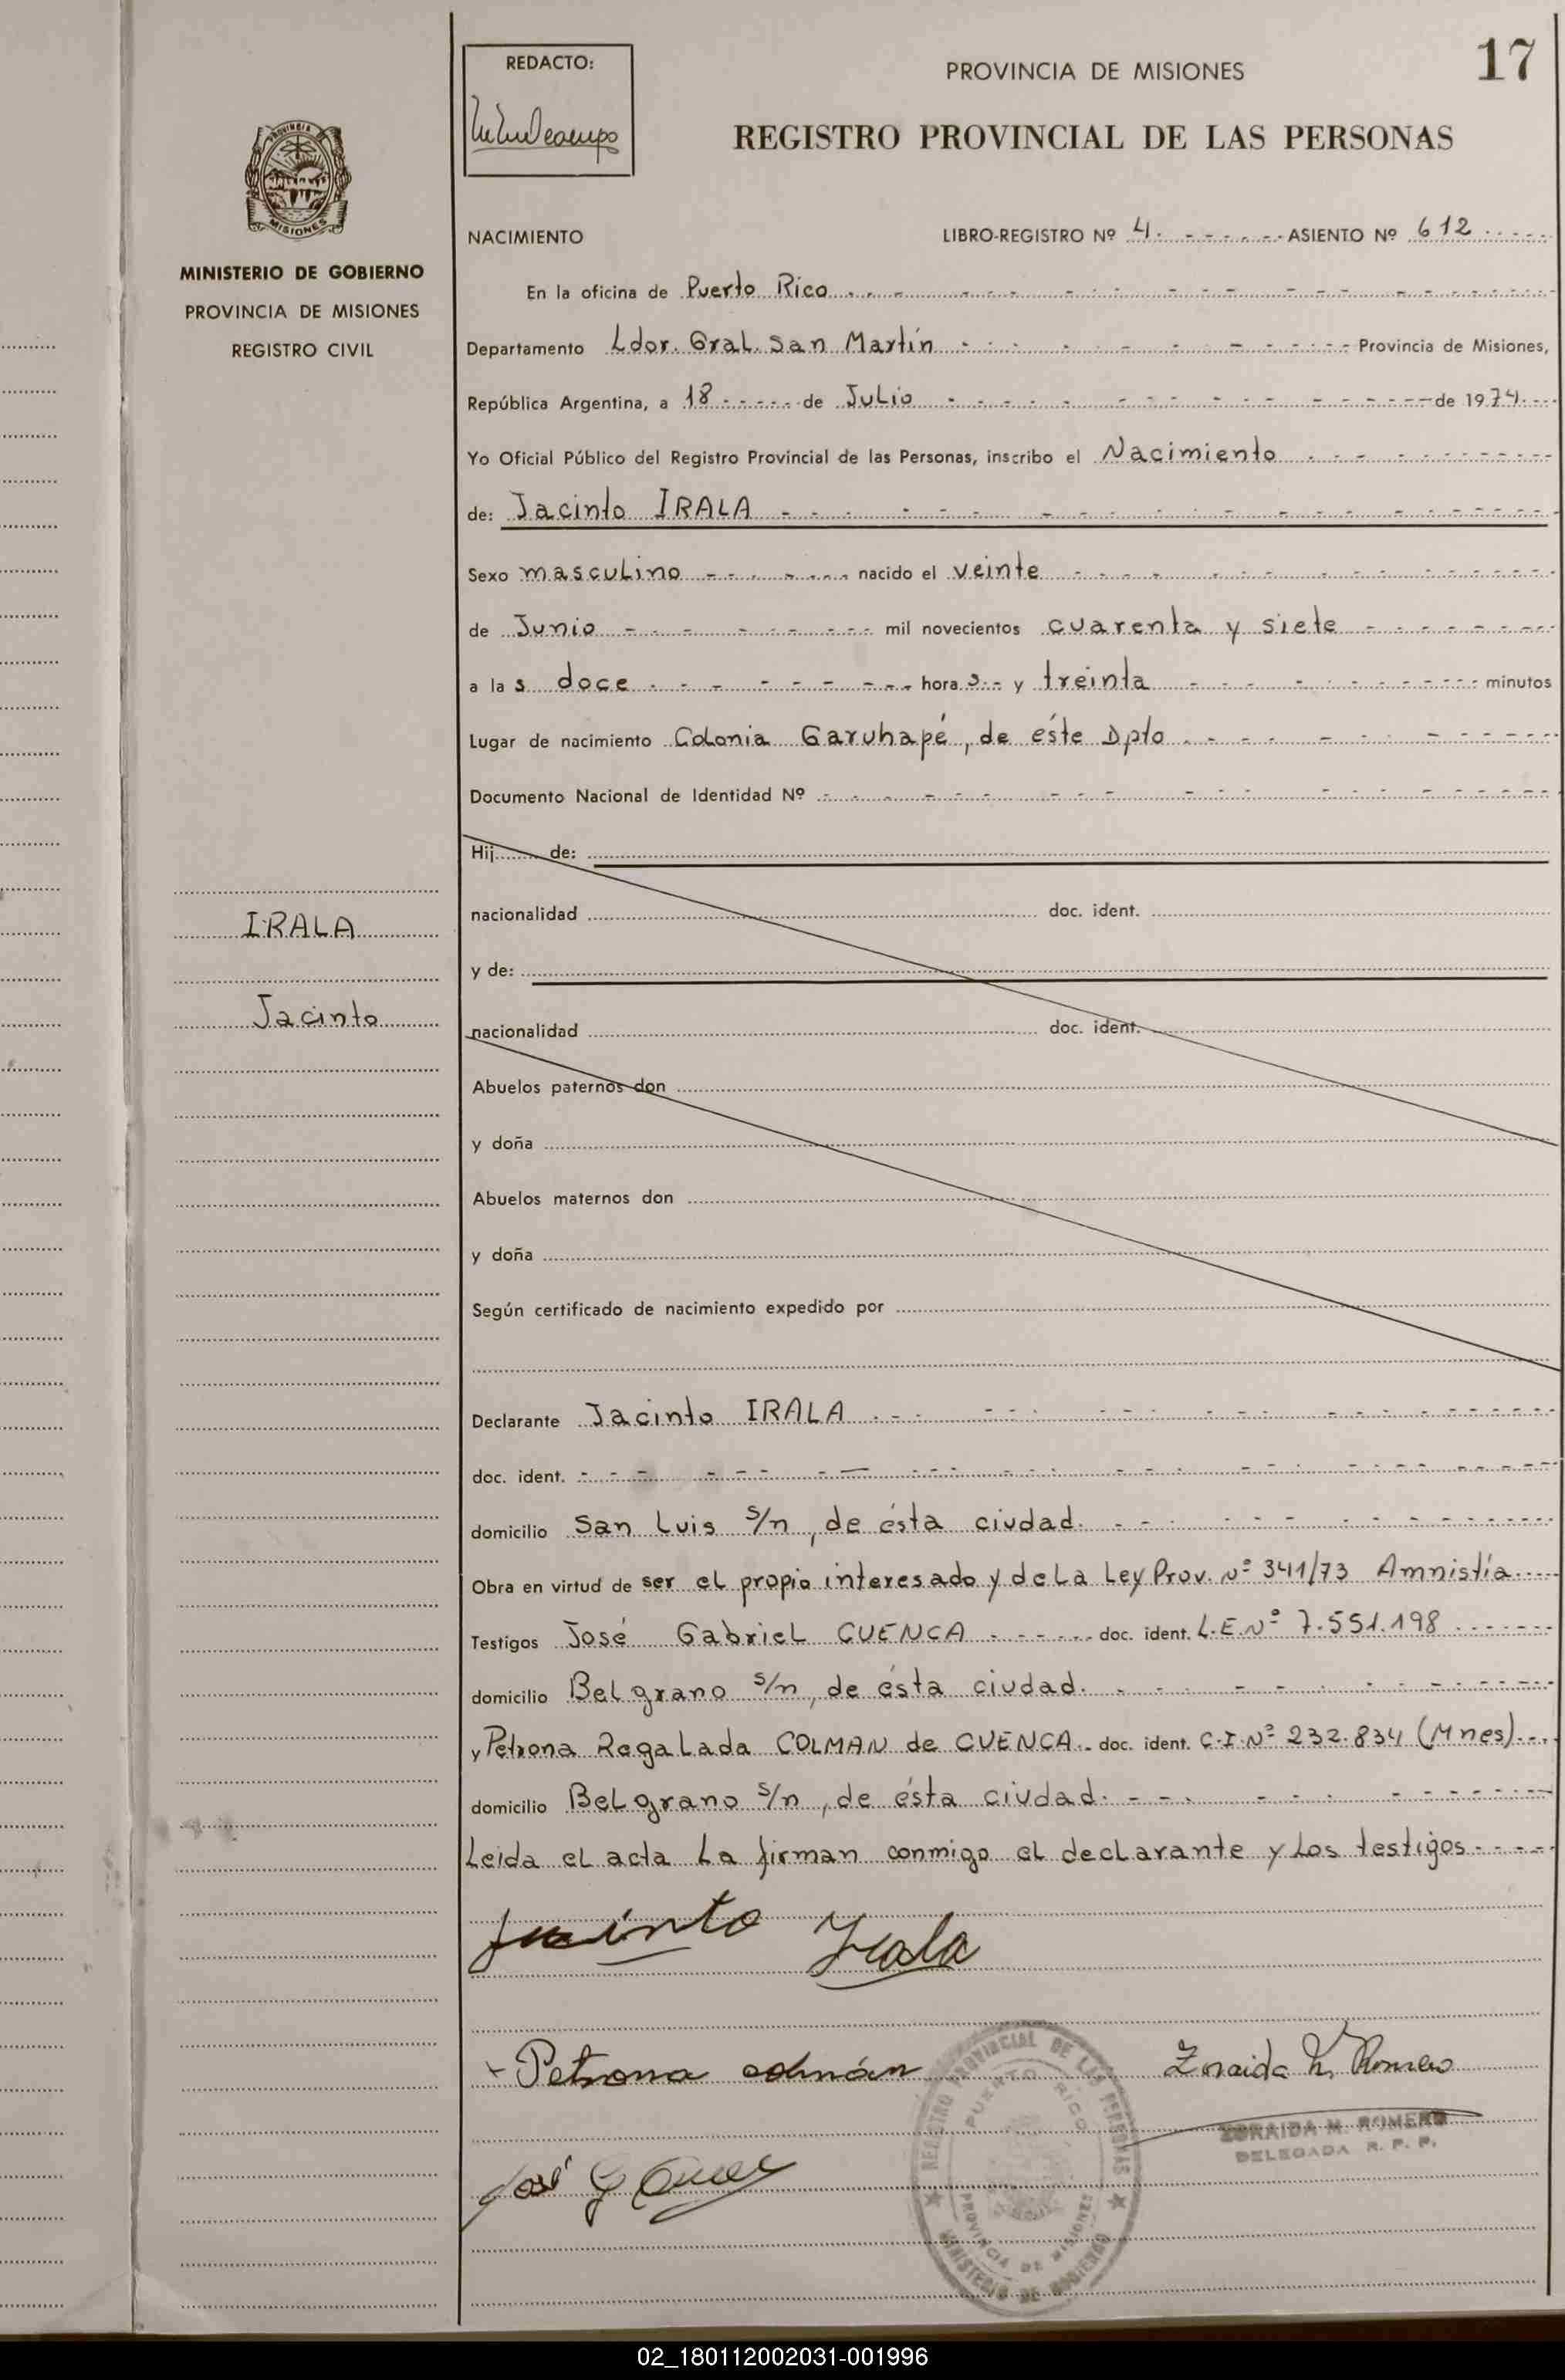 17
REDACTO:
PROVINCIA DE MISIONES
REGISTRO PROVINCIAL DE LAS PERSONAS
MISIONES
MINISTERIO DE GOBIERNO
PROVINCIA DE MISIONES
REGISTRO CIVIL
NACIMIENTO LIBRO-REGISTRO Nº 4 ASIENTO Nº 612
En la oficina de Puerto Rico
Departamento Ldor. Gral. San Martín Provincia de Misiones,
República Argentina, a 18 de Julio de 1974
Yo Oficial Público del Registro Provincial de las Personas, inscribo el Nacimiento
de: Jacinto IRALA
Sexo masculino nacido el veinte
de Junio mil novecientos cuarenta y siete
a las doce horas y treinta minutos
Lugar de nacimiento Colonia Garuhapé, de éste Dpto
Documento Nacional de Identidad Nº
Hij de:
nacionalidad doc. ident.
IRALA
y de:
Jacinto
nacionalidad doc. ident.
Abuelos paternos don
y doña
Abuelos maternos don
y doña
Según certificado de nacimiento expedido por
Declarante Jacinto IRALA
doc. ident.
domicilio San Luis s/n, de ésta ciudad.
Obra en virtud de ser el propio interesado y de la Ley Prov. Nº 341/73 Amnistía
Testigos José Gabriel CUENCA doc. ident. L.E.Nº 7.551.198
domicilio Belgrano s/n, de ésta ciudad.
y Petrona Regalada COLMAN de CUENCA. doc. ident. C.I.Nº 232.834 (Mnes)
domicilio Belgrano s/n, de ésta ciudad.
Leida el acta la firman conmigo el declarante y los testigos
Jacinto Irala
Petrona colmán Zoraida M. Romero
ZORAIDA M. ROMERO
DELEGADA R. P. P.
José G
REGISTRO PROVINCIAL DE LAS PERSONAS
PUERTO RICO
PROVINCIA DE MISIONES
MINISTERIO DE GOBIERNO
02_180112002031-001996